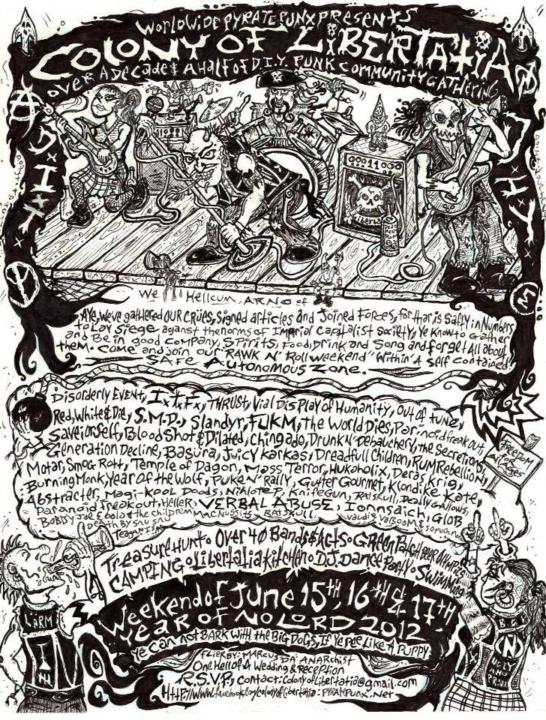 WORLDWIDE PYRATE PUNX PRESENTS
COLONY OF LIBERTATIA
OVER A DECADE & A HALF OF D.I.Y. PUNK COMMUNITY GATHERING
D.I.Y.
D.I.Y.
WE HELLCUM
Aye, we've gathered our crües, signed articles and Joined Forces, for thar is Safty in Numbers
to Lay Siege against the norms of Imperial Capitalist Society, Ye Know to Gather
and Be in good Company, Spirits, Food, Drink and Song and forget All about
them. Come and join our "RAWK N' Roll weekend" Within A self contained
SAFE Autonomous Zone.
Disorderly Event, I.F.Fx, THRUST, Vial Display of Humanity, Out of Tune,
Red, White & Die, S.M.D., Slandyr, FUKM, The World Dies,
Save YorSelf, Blood Shot & Dilated, Chingado, Drunk N' Debauchery, the Secretions,
Generation Decline, Basura, Juicy Karkas, Dreadfull Children, RUM REBELLION,
Motar, Smog Rott, Temple of Dagon, Mass Terror, Hukaholix, Deras Krig,
Burning Monk, Year of the Wolf, Puke N' rally, Gutter Gourmet, Klondike Kate,
Abstracter, Magi-Kool Doods, Nihilotep, Knife Gun,
Paranoid Freakout, Heller, VERBAL ABUSE, Ionnsaich, GLOB
Treasure Hunt o Over 40 Bands & Acts o
CAMPING o Libertatia Kitchen o D.J. Dance Party o Swimming
Weekend of June 15th, 16th & 17th
YEAR OF NO LORD 2012
Ye can not BARK with the BIG DOGS, If Ye Pee Like A PUPPY
FLIER BY: MARCUS DA ANARCHIST
One Hell of A Wedding & Reception
R.S.V.P. contact: colonyoflibertatia@gmail.com
PyratePunx.Net